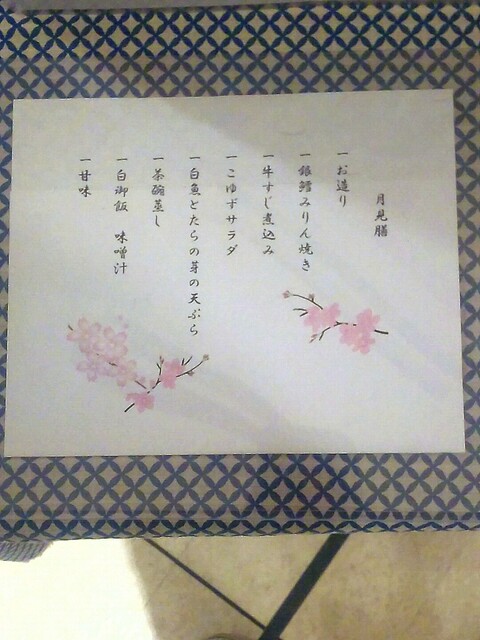 月見膳
一 お造り
一 銀鱈みりん焼き
一 牛すじ煮込み
一 こゆずサラダ
一 白魚とたらの芽の天ぷら
一 茶碗蒸し
一 白御飯 味噌汁
一 甘味